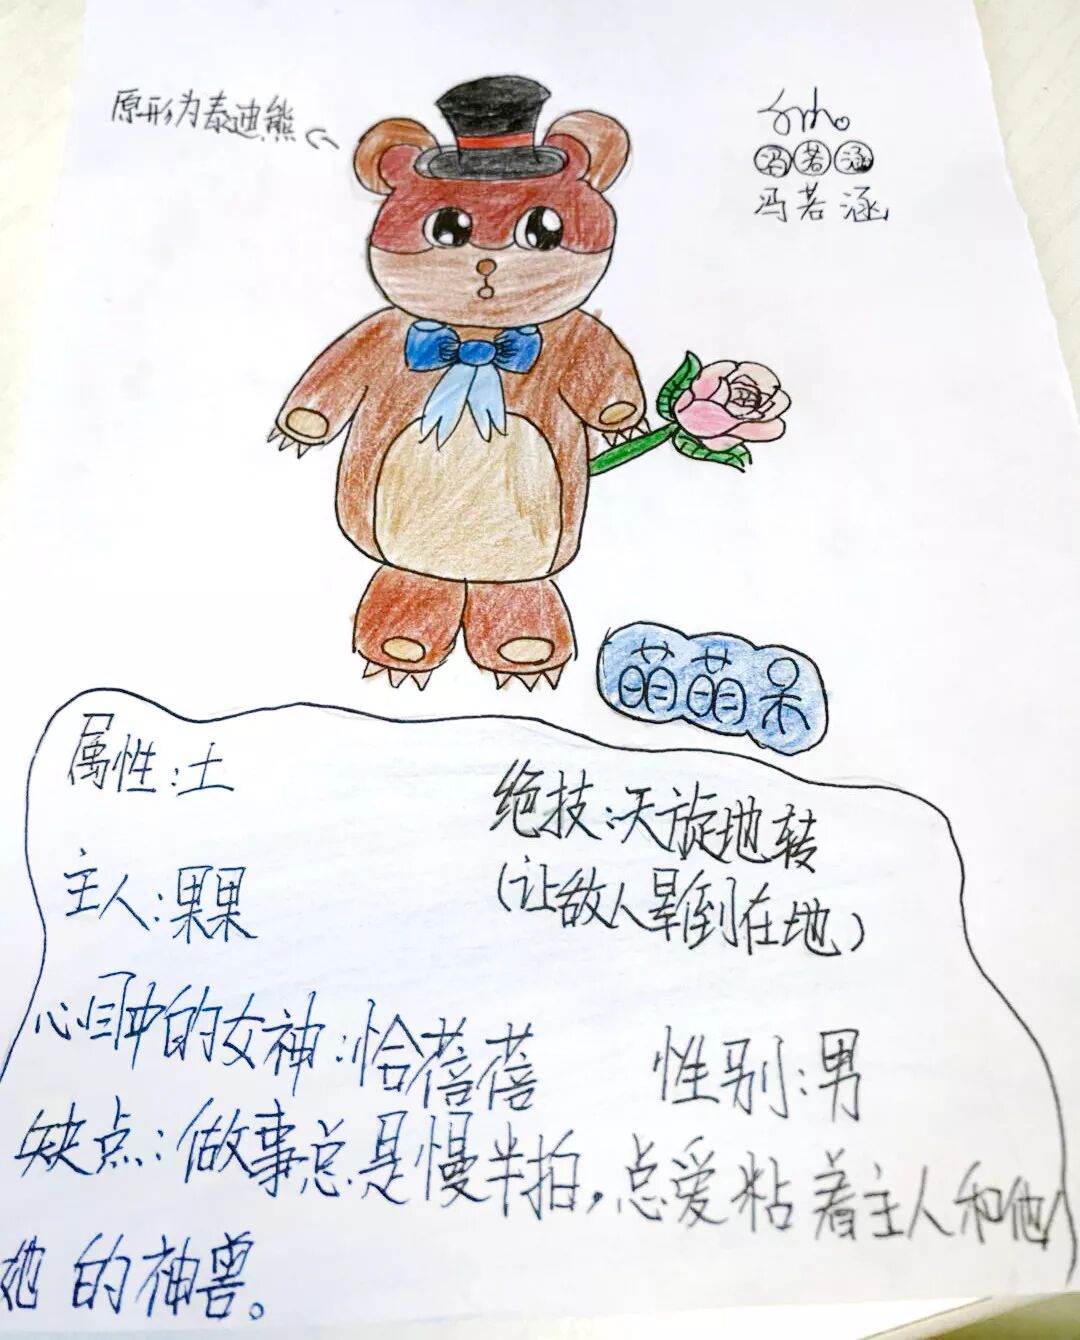 原形为泰迪熊
冯若涵
冯若涵
萌萌呆
属性:土
绝技:天旋地转
(让敌人晕倒在地)
主人:果果
心目中的女神:恰蓓蓓
性别:男
缺点:做事总是慢半拍,总爱粘着主人和他
她的神兽。